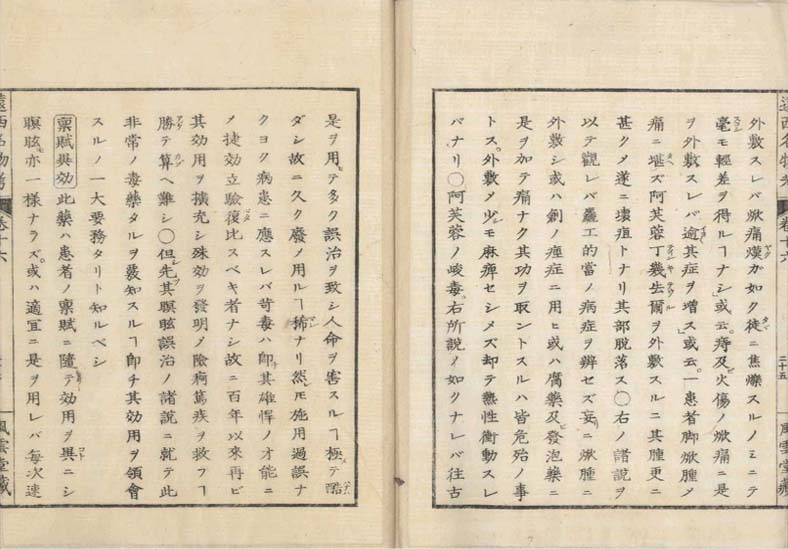 外敷スレバ焮痛燬カ如ク徒ニ焦爍スルノミニテ
毫モ輕差ヲ得ルヿナシ」或云。痔及ビ火傷ノ焮痛ニ是
ヲ外敷スレバ逾其症ヲ増ス」或云。一患者脚焮腫メ
痛ニ堪ズ阿芙蓉丁幾生爾ヲ外敷スルニ其腫更ニ
甚クメ遂ニ壊疽トナリ其部脱落ス〇右ノ諸説ヲ
以テ觀レバ麤工的當ノ病症ヲ辨セズ妄ニ焮腫ニ
外敷シ或ハ劇ノ痙症ニ用ヒ或ハ腐藥及ビ發泡藥ニ
是ヲ加テ痛ナク其功ヲ取ントスルハ皆危殆ノ事
トス。外敷メ少モ麻痺セシメズ却テ熱性衝動スレ
バナリ〇阿芙蓉ノ峻毒。右所説ノ如クナレバ往古
遠西名物考
卷十六
二十五
風雲堂藏
是ヲ用テ多ク誤治ヲ致シ人命ヲ害スルヿ極テ酷
ダシ故ニ久ク廢ノ用ルヿ稀ナリ然ドモ施用過誤ナ
クヨク病患ニ應スレバ苛毒ハ即其雄悍ノ才能ニ
メ捷効立驗復比スベキ者ナシ故ニ百年以來再ビ
其効用ヲ擴充シ殊効ヲ發明メ險痾篤疾ヲ救フヿ
勝テ算ヘ難シ〇但先其瞑眩誤治ノ諸説ニ就テ此
非常ノ毒藥タルヲ覺知スルヿ即チ其効用ヲ領會
スルノ一大要務タリト知ルベシ
稟賦異効 此藥ハ患者ノ稟賦ニ隨テ効用ヲ異ニシ
瞑眩亦一様ナラズ。或ハ適宜ニ是ヲ用レバ毎次速
遠西名物考
卷十六
風雲堂藏